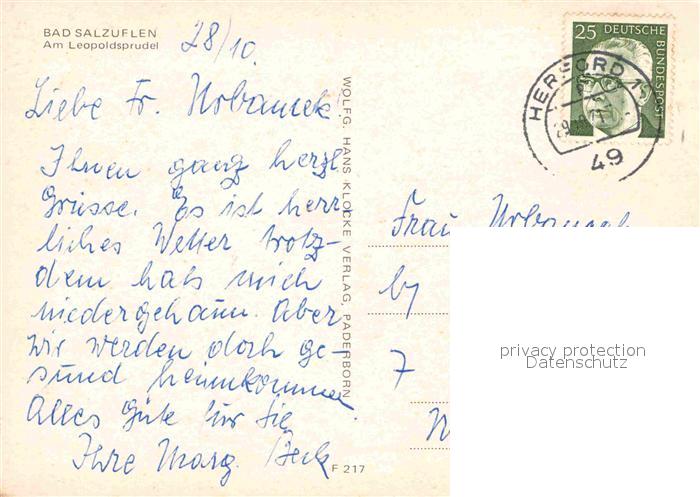 BAD SALZUFLEN
Am Leopoldsprudel
28/10.
Liebe Fr. Urbannek!
Ihnen ganz herzl
Grüsse. Es ist herr
liches Wetter trotz-
dem hats mich
niedergehaun. Aber
wir werden doch ge-
sund heimkommen
Alles Gute für Sie
Ihre Marg. Beck
WOLFG. HANS KLOCKE VERLAG, PADERBORN
F 217
25 DEUTSCHE
BUNDESPOST
HERFORD 1
49
Frau
by
7
privacy protection
Datenschutz